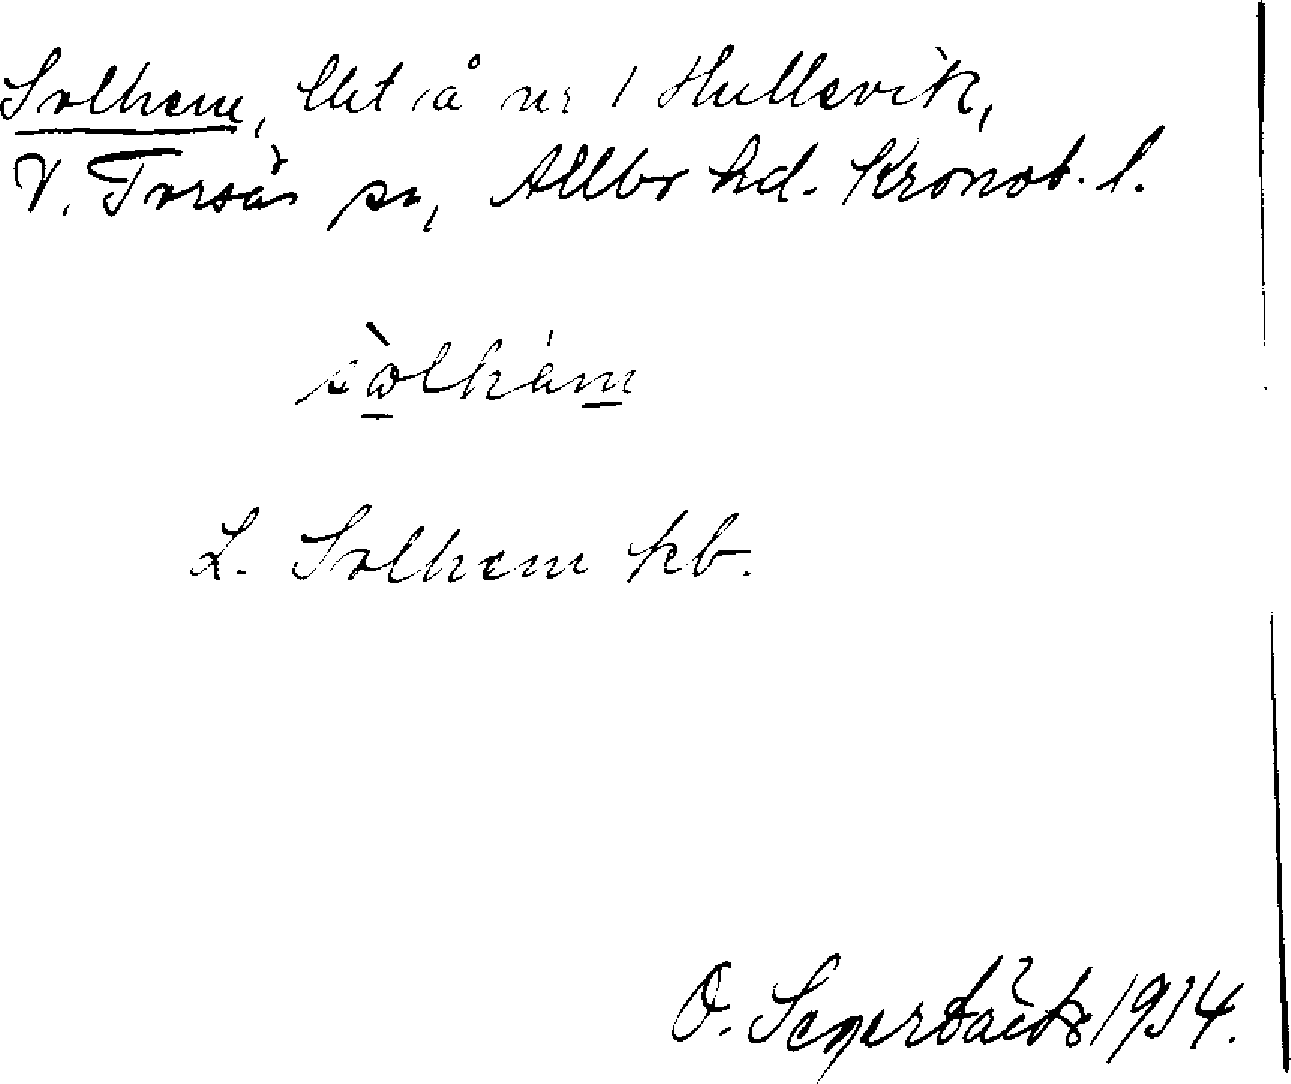 Solhem, lht å nr 1 Hullevik,
V. Torsås sn, Allbo hd. Kronob. l.
sòlhám
L. Solhem kb.
O. 1934.